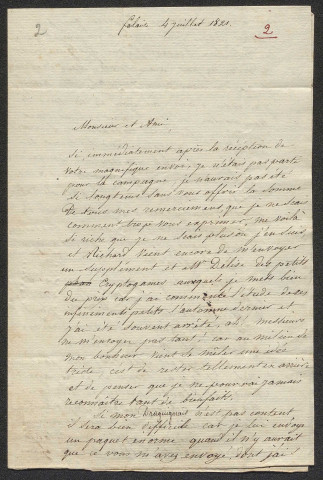 2
falaise 4 juillet 1821.
2
Monsieur et Ami
Si immédiatement après la réception de
votre magnifique envoi, je n'étais pas parti
pour la campagne je n'aurais pas été
si longtems sans vous offrir la somme
de tous mes remerciemens que je ne sais
comment trop vous exprimer, me voilà
si riche que je ne sais plus où j'en suis
et Richard vient encore de m'envoyer
un supplément et Mr Delise des petits
Cryptogames auxquels je mets bien
du prix car j'ai commencé l'étude de ces
infiniments petits l'automne dernier et
j'ai été souvent arrêté, ah messieurs
ne m'envoyez pas tant, car au milieu de
mon bonheur vient se mêler une idée
triste, c'est de rester tellement en arrière
et de penser que je ne pourrai jamais
reconnaître tant de bienfaits.
Si mon n'est pas content
il sera bien difficile car je lui envoye
un paquet enorme, quand il n'y aurait
que ce vous m'avez envoyé, dont j'ai